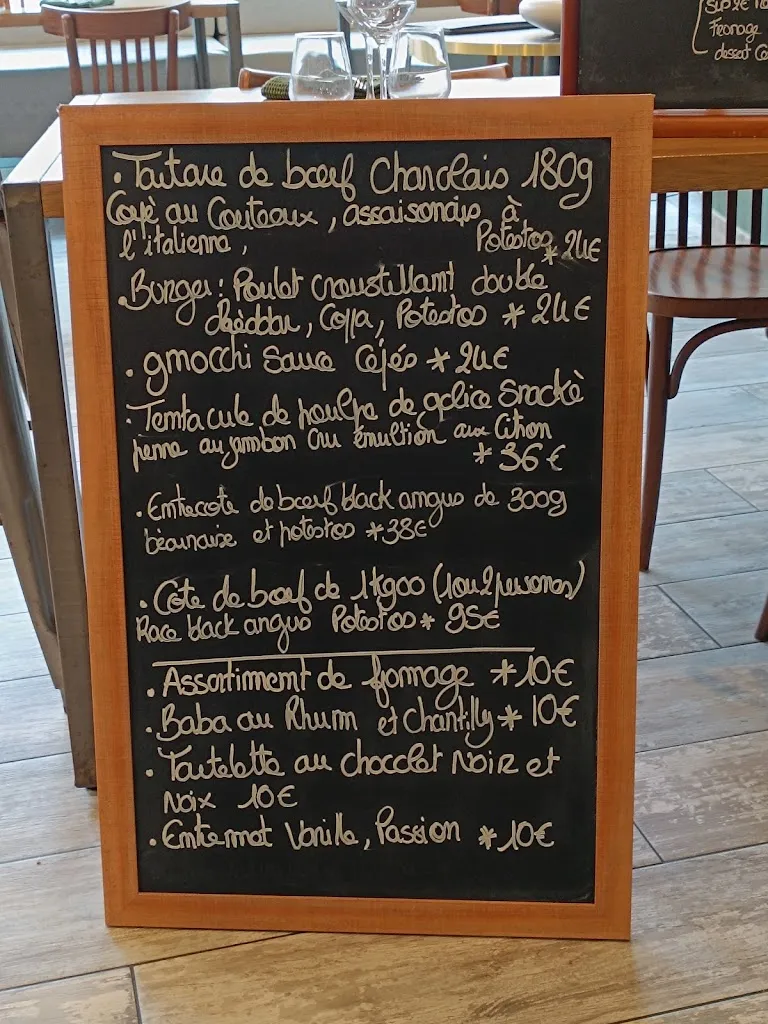 Supée
Fromage
dessert Ca
• Tartare de bœuf Charolais 180g
Coupé au Couteaux, assaisonnés à
l'italienne, Potatos * 24€
• Burger: Poulet croustillant double
cheddar, Coppa, Potatos * 24€
• gnocchi Sauce Cèpes * 24€
• Tentacule de poulpe de galice Snacké
penne au jambon Cru émultion aux Citron
* 36€
• Entrecote de bœuf black angus de 300g
béarnaise et potatos * 38€
• Côte de bœuf de 1kg00 (1 ou 2 personnes)
Race black angus Potatos * 95€
• Assortiment de fromage * 10€
• Baba au Rhum et Chantilly * 10€
• Tartelette au chocolat Noir et
Noix 10€
• Entremet Vanille, Passion * 10€